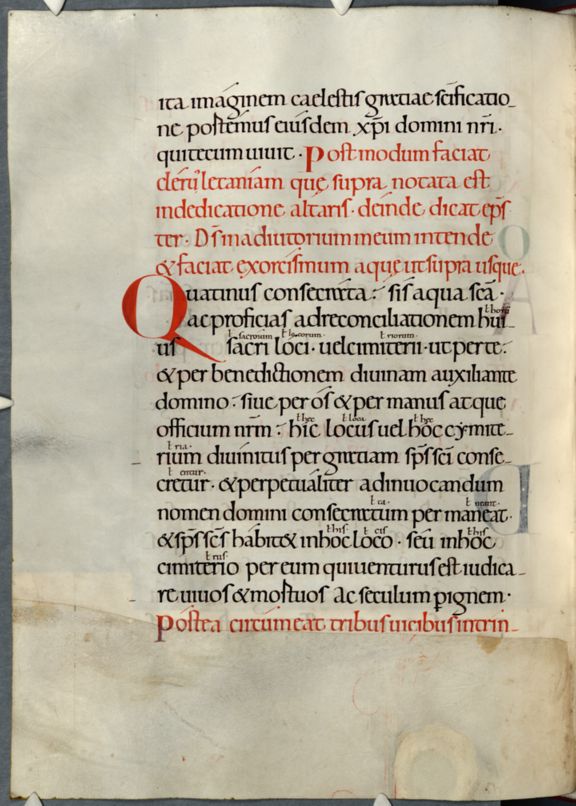 ita imaginem caelestis gratiae scificatio-
ne postemus eiusdem xpi domini nri·
qui tecum uiuit· Postmodum faciat
cleru letaniam que supra notata est
indedicatione altaris· deinde dicat eps
ter· Ds in adiutorium meum intende
& faciat exorcismum aque ut supra usque·
Quatinus consecrata· sis aqua sca·
ł horũ
ac proficias adreconciliationem hui-
ł sacrorum ł locorum· ł riorum·
us sacri loci· uel cimiterii· ut per te·
& per benedictionem diuinam auxiliante
domino· siue per os & per manus atque
ł hec ł loca ł hec
officium nrm· hic locus uel hoc cymite-
ł ria·
rium diuinitus per gratiam sps sci conse-
ł entur·
cretur· & perpetualiter ad inuocandum
ł ta ł neant·
nomen domini consecratum permaneat·
ł his ł cis ł his
& sps scs habit& in hoc loco· seu in hoc
ł riis
cimiterio per eum qui uenturus est iudica-
re uiuos & mostuos ac seculum p ignem·
Postea circumeat tribus uicibus intrin-